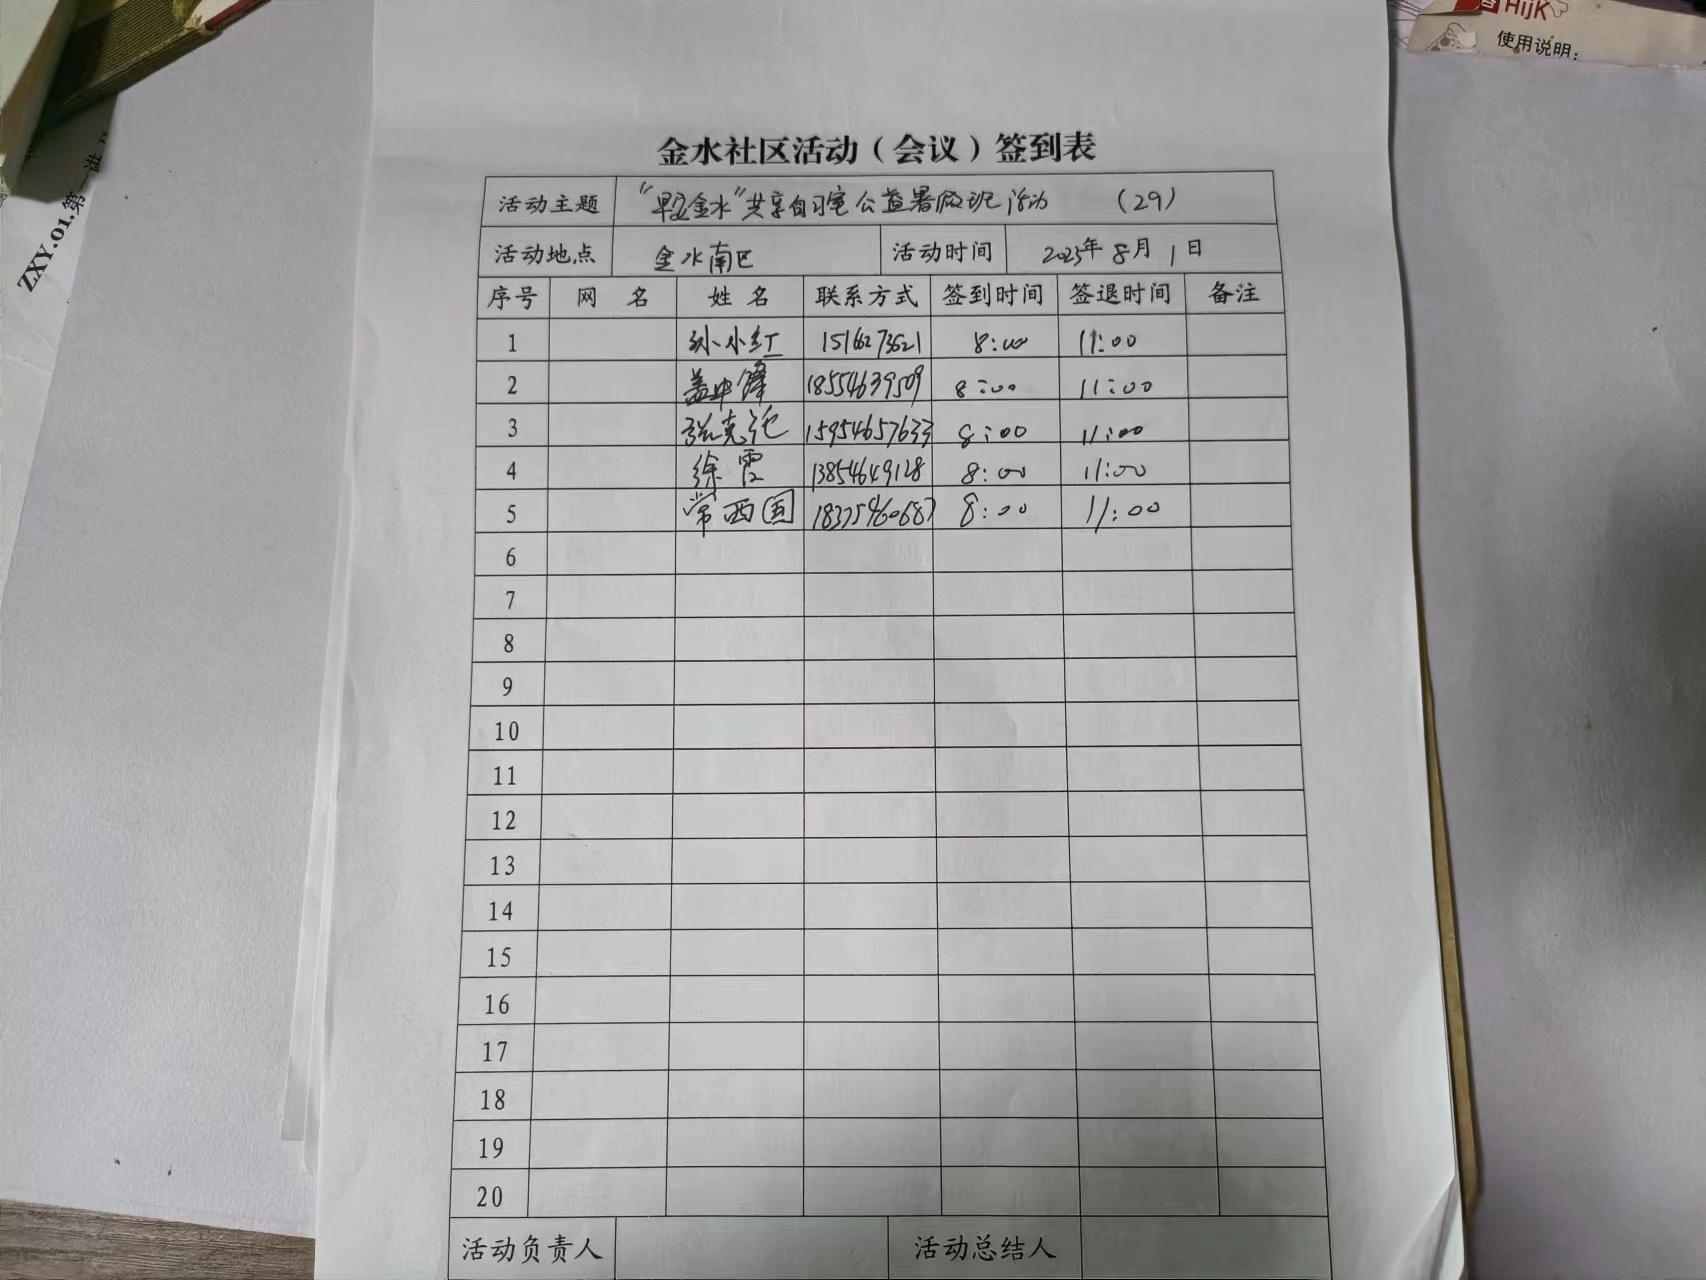 HijK
使用说明:
ZXY.01.第一讲
金水社区活动（会议）签到表
活动主题 “早安金水”共享自习室公益暑假班活动 （29）
活动地点 金水南区 活动时间 2023年8月1日
序号 网 名 姓 名 联系方式 签到时间 签退时间 备注
1 孙小红 8:00 11:00
2 盖中锋 18554639509 8:00 11:00
3 15954657633 8:00 11:00
4 徐霞 13854649128 8:00 11:00
5 常西国 8:00 11:00
6
7
8
9
10
11
12
13
14
15
16
17
18
19
20
活动负责人 活动总结人